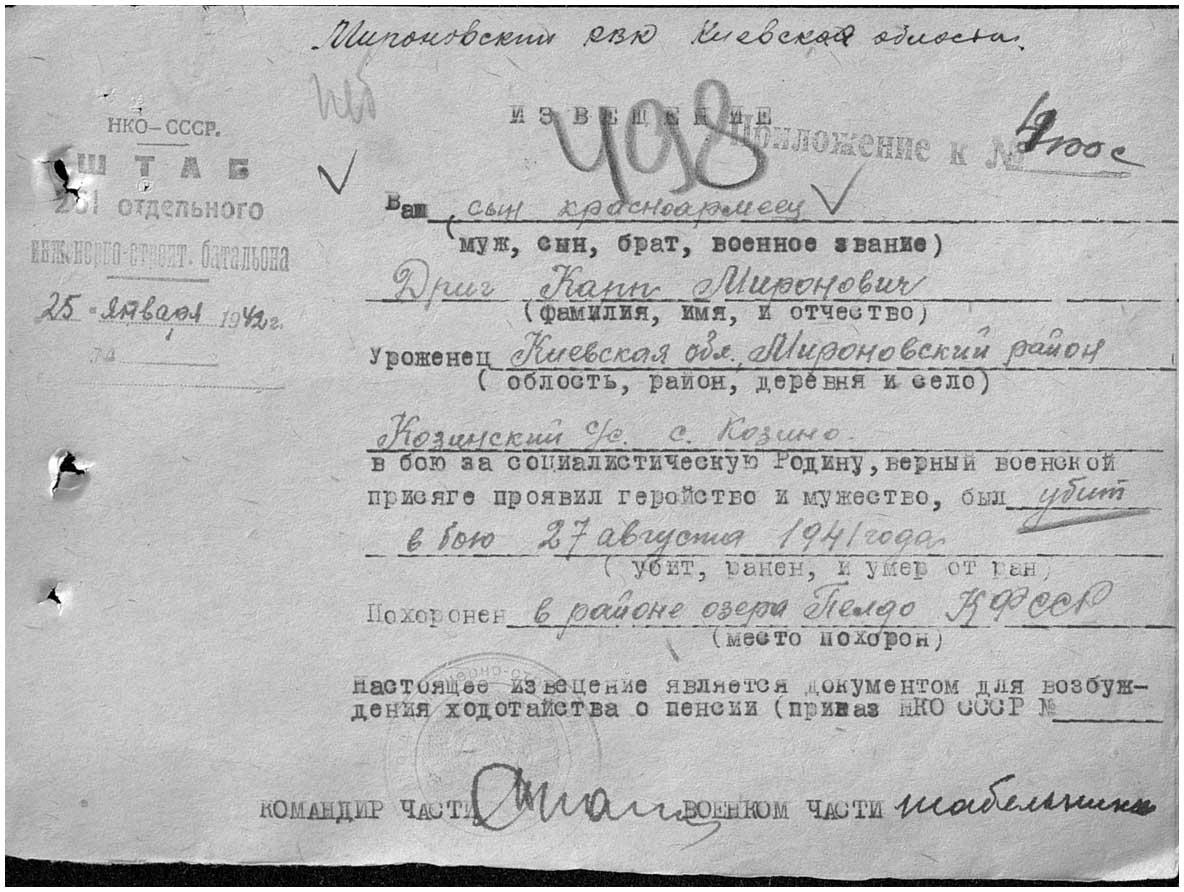 Мироновский РВК Киевской области.
ИЗВЕЩЕНИЕ
498
Приложение к №
НКО-СССР.
ШТАБ
261 отдельного
инженерно-строит. батальона
25 " января 1942 г.
Ваш сын красноармеец
(муж, сын, брат, военное звание)
Дриг Капп Миронович
(фамилия, имя, и отчество)
Уроженец Киевская обл. Мироновский район
( облость, район, деревня и село)
Козинский с/с. с. Козино.
в бою за социалистическую Родину, верный военской
присяге проявил геройство и мужество, был убит
в бою 27 августа 1941 года
(убит, ранен, и умер от ран)
Похоронен в районе озера Пелдо КФССР
(место похорон)
Настоящее извещение является документом для возбуж-
дения ходотайства о пенсии (приказ НКО СССР №
КОМАНДИР ЧАСТИ ВОЕНКОМ ЧАСТИ